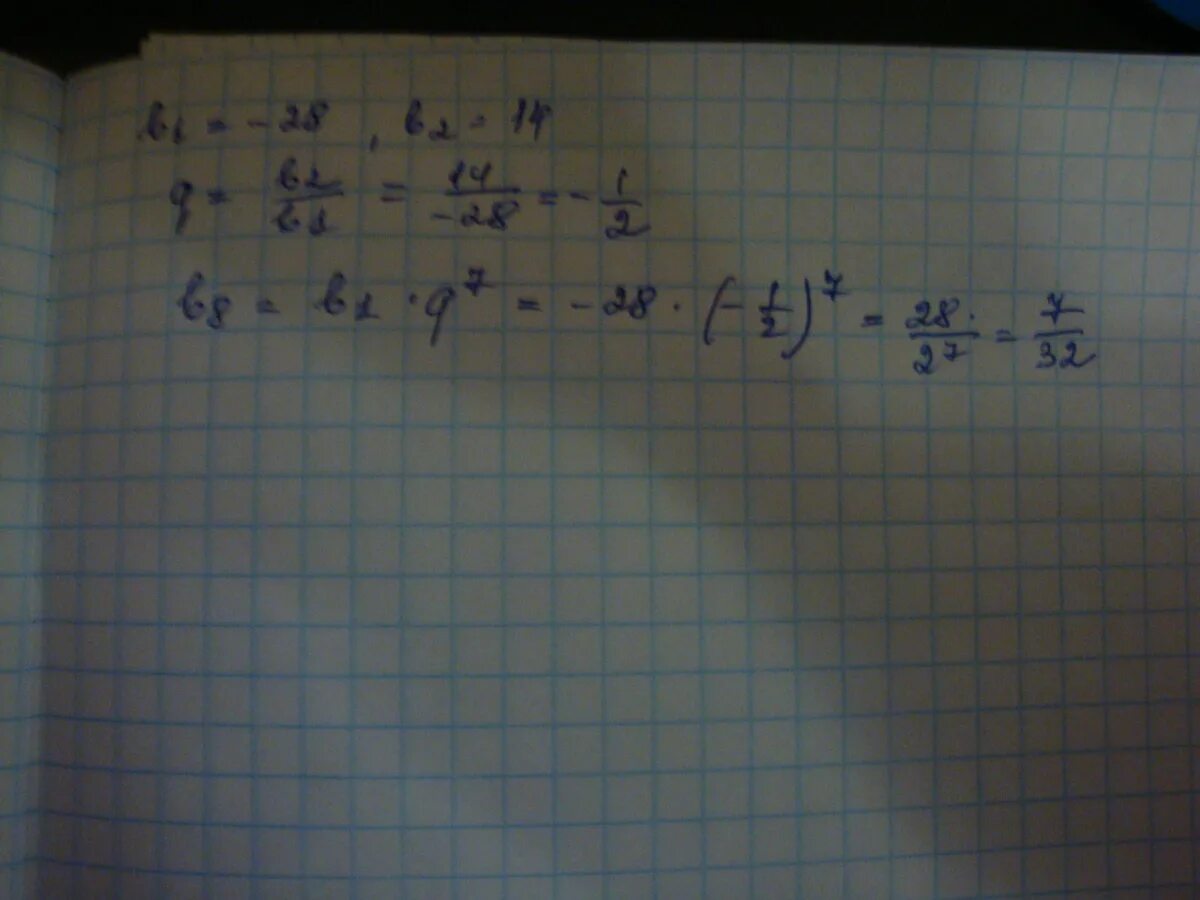 b₁ = -28, b₂ = 14
q = b₂/b₁ = 14/-28 = -1/2
b₈ = b₁ · q⁷ = -28 · (-1/2)⁷ = 28·/2⁷ = 7/32